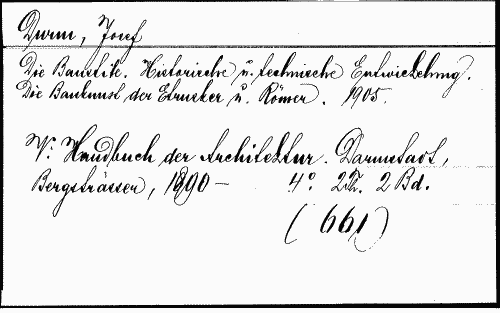 Durm, Josef
Die Baustile. Historische u. technische Entwickelung.
Die Baukunst der Etrusker u. Römer. 1905.
V: Handbuch der Architektur. Darmstadt,
Bergsträsser, 1890- 4° 2T. 2 Bd.
(661)